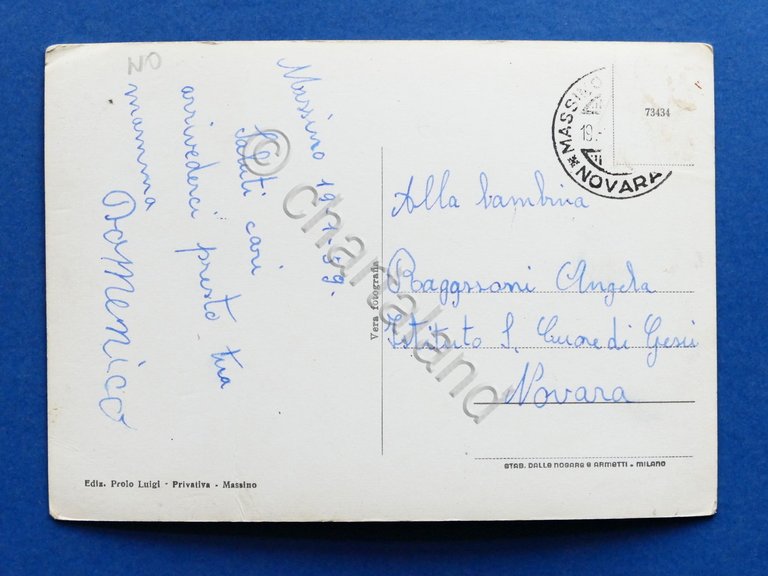 NO
Massino 19-7-59.
Saluti cari
arrivederci presto tua
mamma
Domenico
Ediz. Prolo Luigi · Privativa - Massino
Vera fotografia
MASSINO
19.
NOVARA
73434
Alla bambina
Ragazzoni Angela
Istituto S. Cuore di Gesù
Novara
STAB. DALLE NOGARE E ARMETTI - MILANO
© chartaland